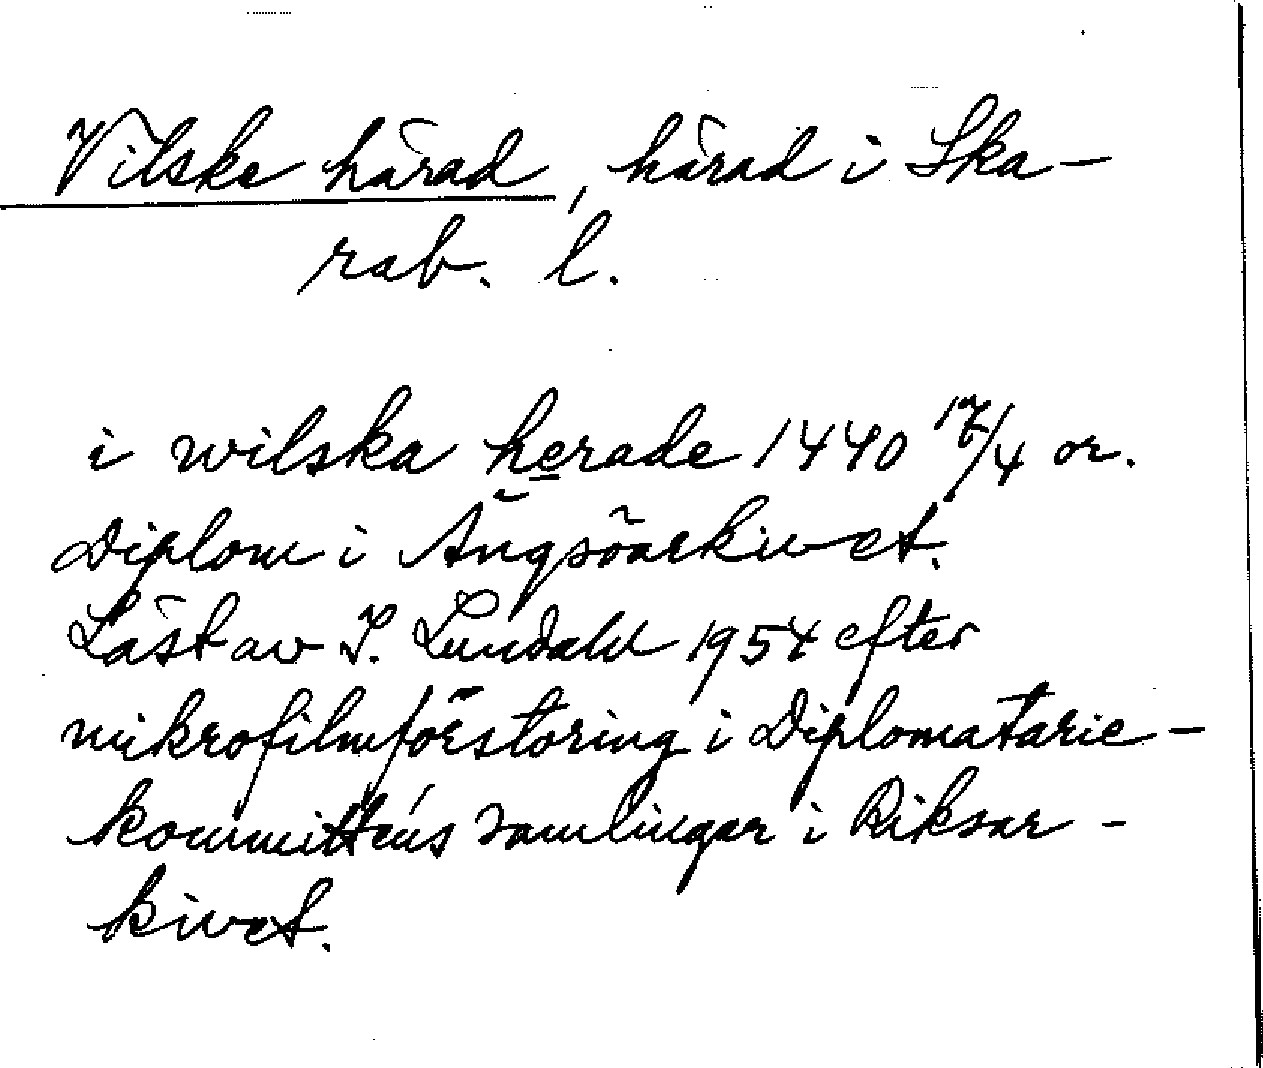 Vilske härad, härad i Ska-
rab. l.
i wilska herade 1440 17/4 or.
Diplom i Ängsöarkivet.
Läst av I. Lundahl 1954 efter
mikrofilmförstoring i Diplomatarie-
kommitténs samlingar i Riksar-
kivet.